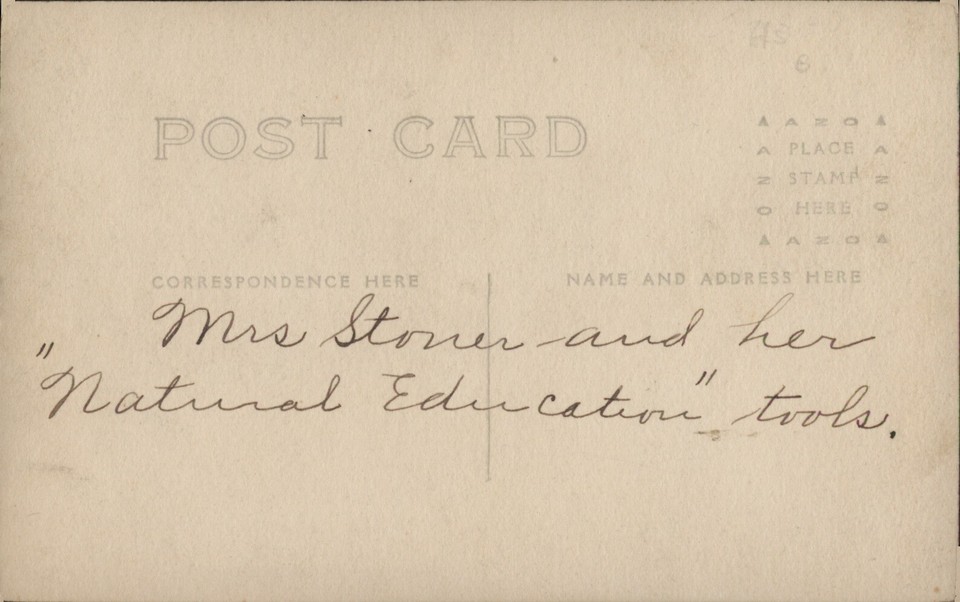 HS
8
POST CARD
AZO
PLACE
STAMP
HERE
AZO
CORRESPONDENCE HERE
NAME AND ADDRESS HERE
Mrs Stoner and her
"Natural Education" tools.